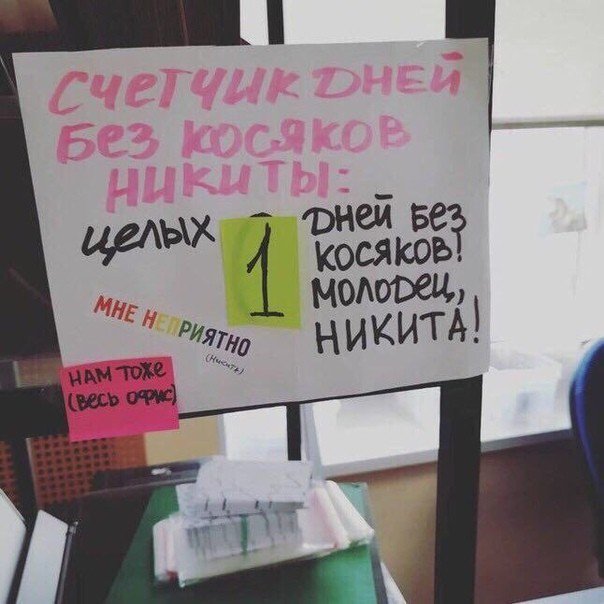 Счетчик дней
без косяков
Никиты:
целых 1 дней без
косяков!
молодец,
Никита!
МНЕ НЕПРИЯТНО
(Никита)
НАМ ТОЖЕ
(ВЕСЬ ОФИС)